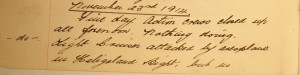 November 23rd 1914
Fine day. Action crews closed up
-do-
all forenoon. Nothing doing.
Light Cruiser attacked by aeroplane
in Heligoland Bight, but no